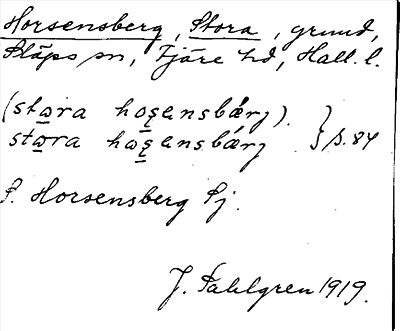 Horsensberg, Stora, grund,
Släps sn, Fjäre hd, Hall. l.
(stora hosensbærj).
stora hosensbærj } s. 84
S. Horsensberg Sj.
J. Sahlgren 1919.